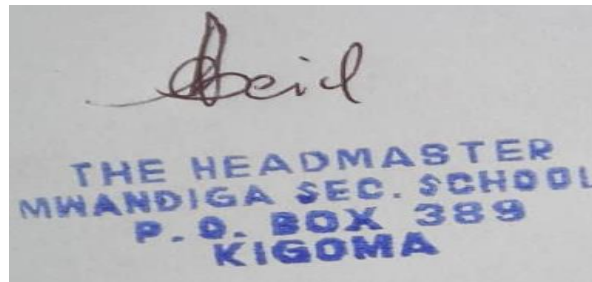 THE HEADMASTER
MWANDIGA SEC. SCHOOL
P.O. BOX 389
KIGOMA